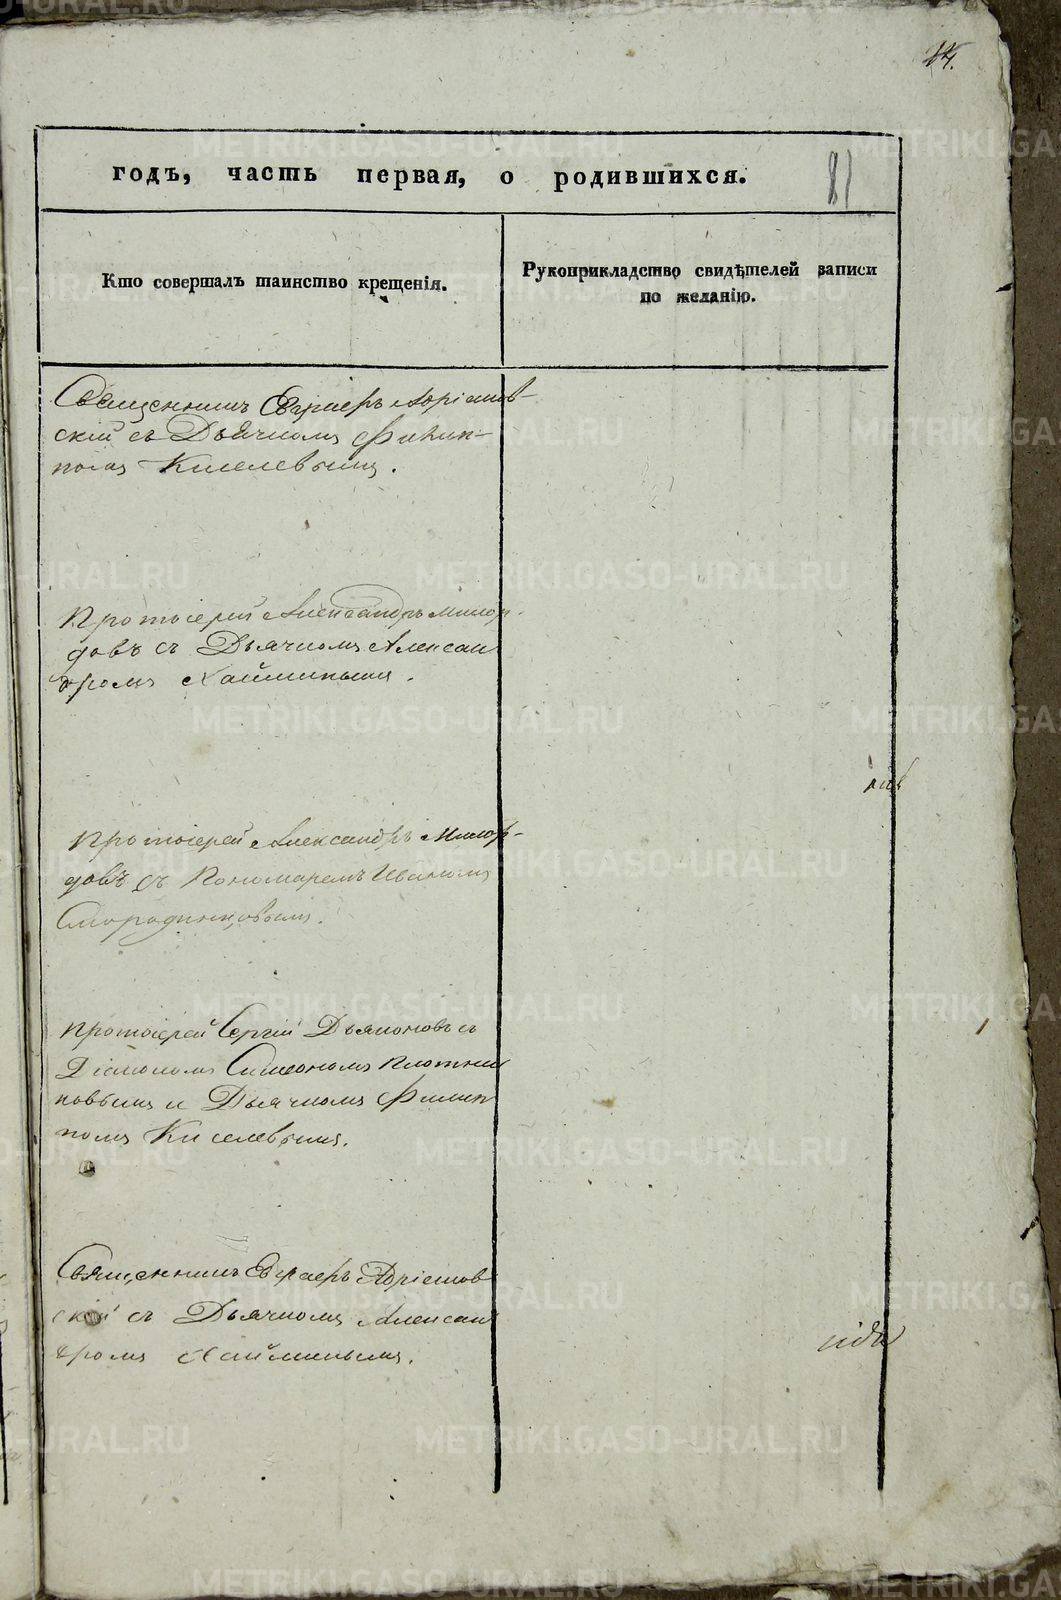 годъ, часть первая, о родившихся.
81
Кто совершалъ таинство крещенія.
Рукоприкладство свидѣтелей записи
по желанію.
Священникъ Евграфъ Адріанов-
скій съ Дьячкомъ Филип-
помъ Киселевымъ.
Протоіерей Александръ Милор-
довъ съ Дьячкомъ Алексан
дромъ Хайминымъ.
Протоіерей Александръ Милор-
довъ съ Пономаремъ Иваномъ
Смородинцовымъ.
Протоіерей Сергій Дьяконовъ съ
Діакономъ Симеономъ Плотни
ковымъ и Дьячкомъ Филип
помъ Киселевымъ.
Священникъ Евграфъ Адріанов
скій съ Дьячкомъ Алексан
дромъ Хайминымъ.
METRIKI.GASO-URAL.RU